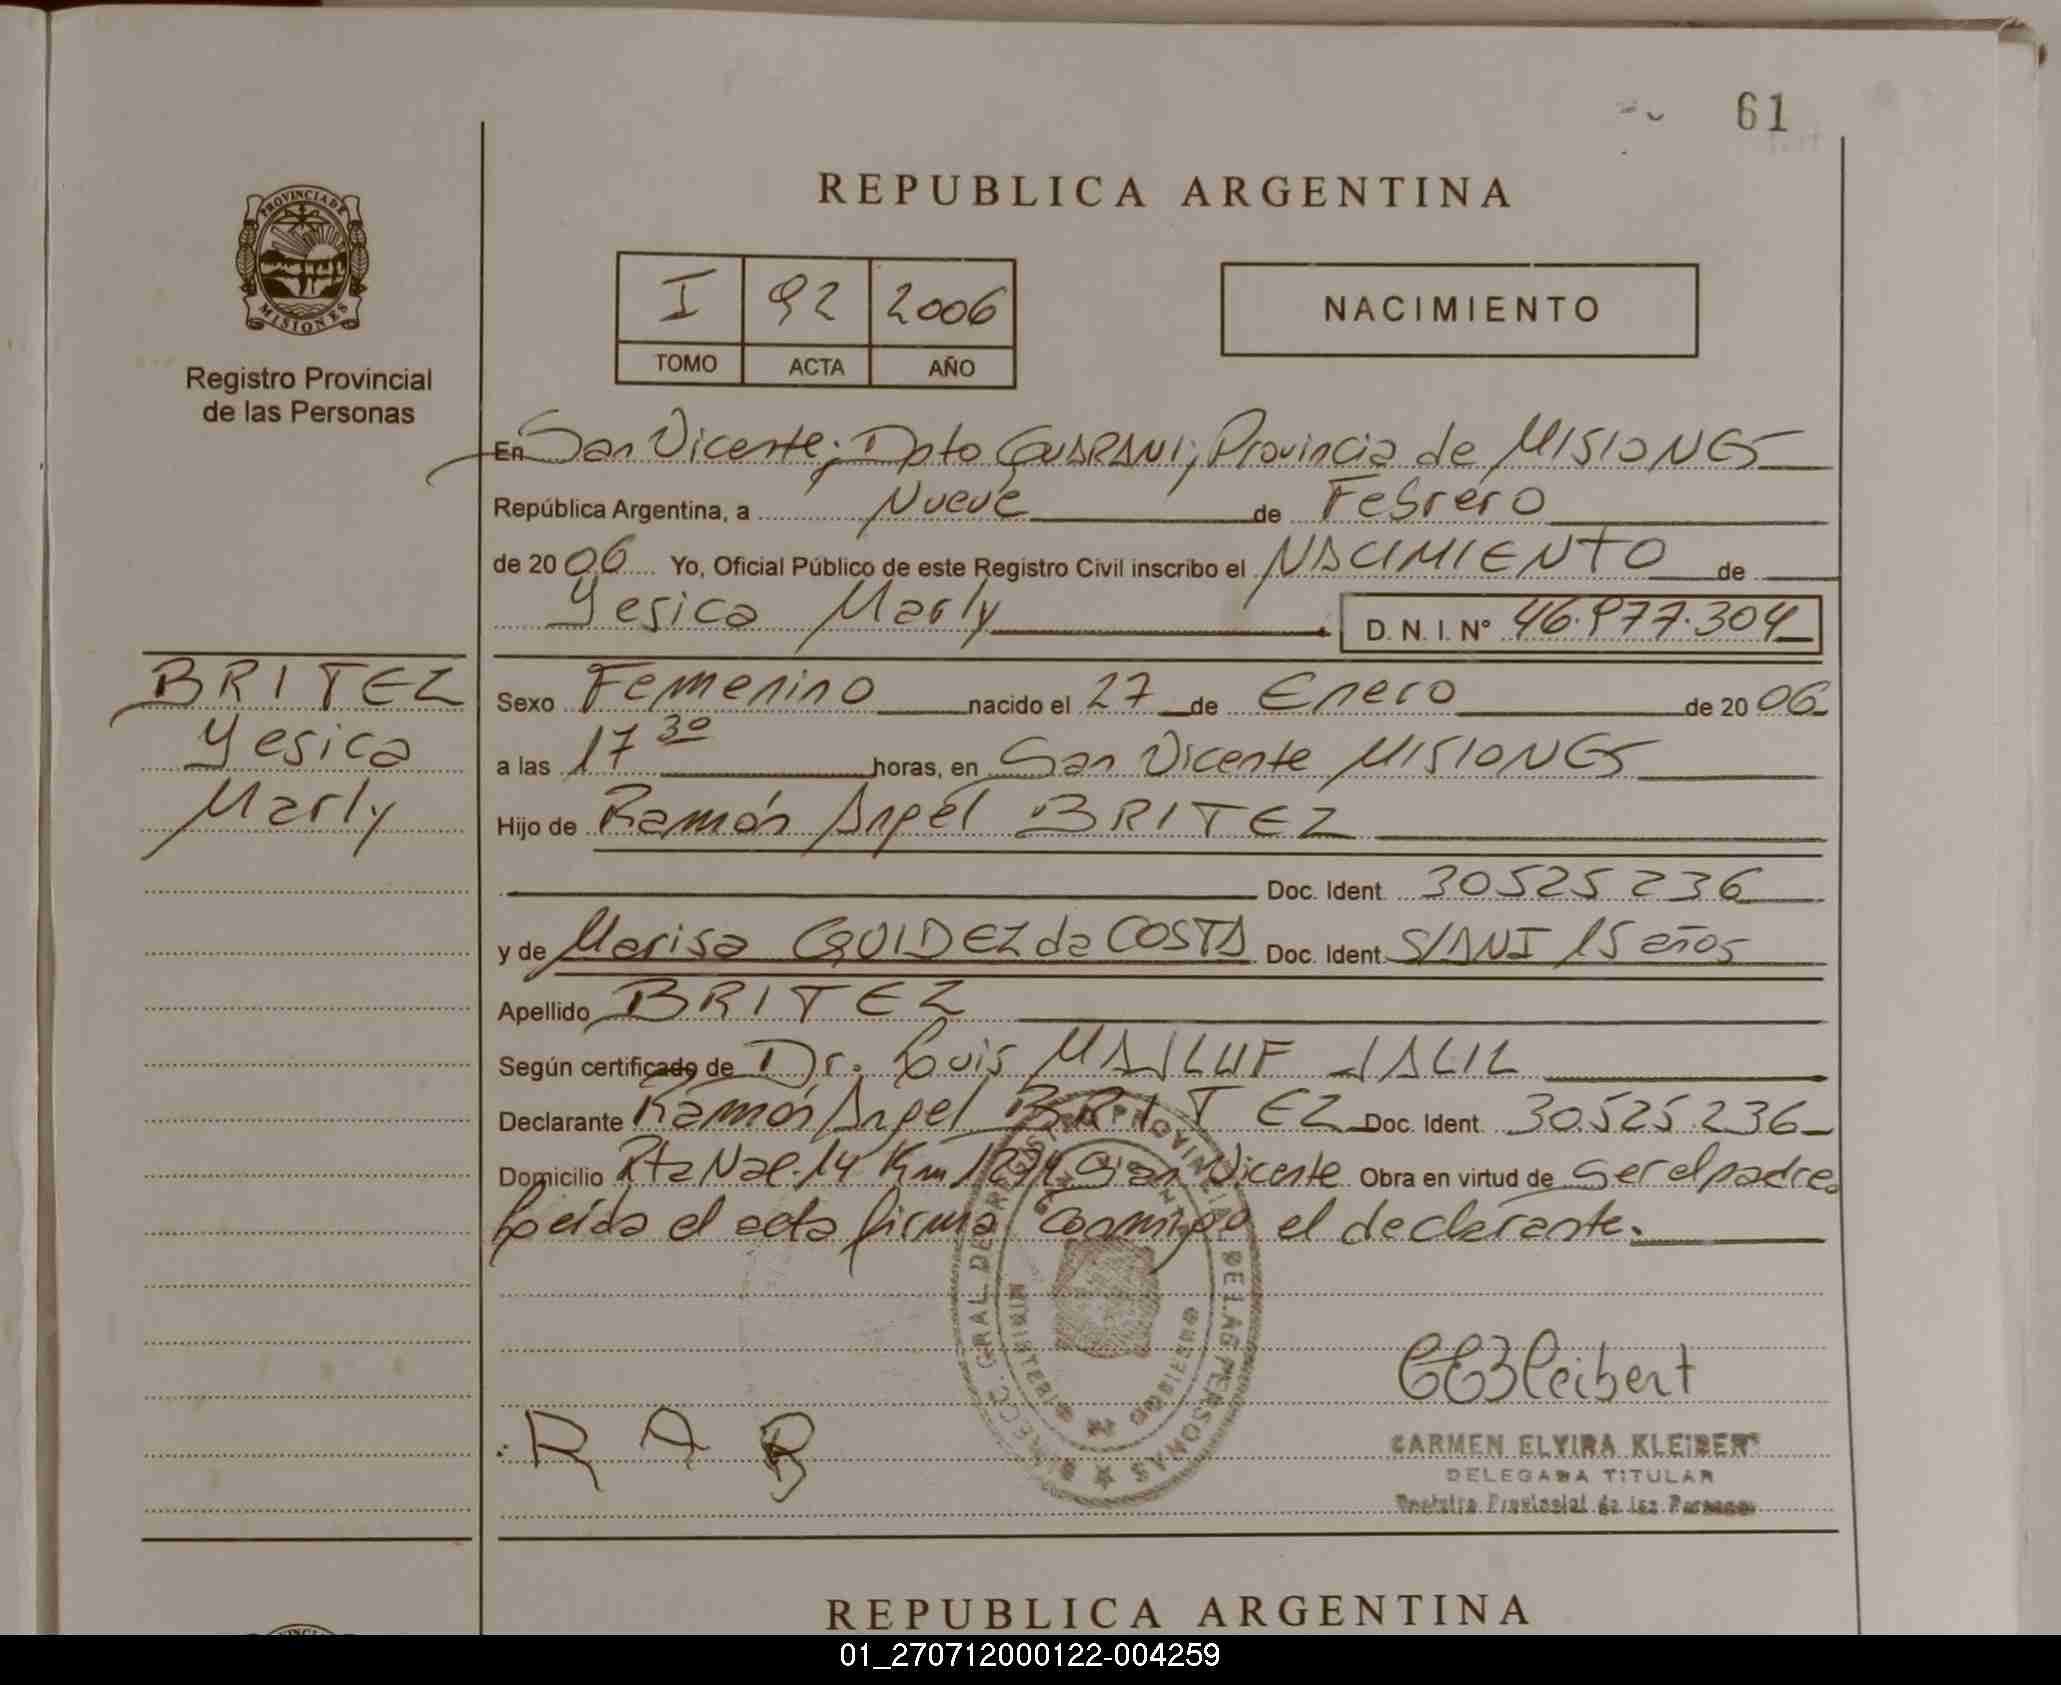 61
REPUBLICA ARGENTINA
PROVINCIA DE
MISIONES
Registro Provincial
de las Personas
I 92 2006
TOMO ACTA AÑO
NACIMIENTO
En San Vicente; Dpto GUARANI; Provincia de MISIONES
República Argentina, a Nueve de Febrero
de 2006 Yo, Oficial Público de este Registro Civil inscribo el NACIMIENTO de
Yesica Marly D. N. I. Nº 46.977.304
BRITEZ
Yesica
Marly
Sexo Femenino nacido el 27 de Enero de 2006
a las 17 30 horas, en San Vicente MISIONES
Hijo de Ramón Angel BRITEZ
Doc. Ident. 30525236
y de Marisa GUIDEZ da COSTA Doc. Ident. S/DNI 15 años
Apellido BRITEZ
Según certificado de Dr. Luis MAJLUF JALIL
Declarante Ramón Angel BRITEZ Doc. Ident. 30.525.236
Domicilio Rta Nac. 14 Km San Vicente Obra en virtud de ser el padre.
Leida el acta firma conmigo el declarante.
DIRECC. GRAL. DEL REGISTRO PROVINCIAL DE LAS PERSONAS
MINISTERIO DE GOBIERNO
R A B
CEKleibert
CARMEN ELVIRA KLEIBERT
DELEGADA TITULAR
Registro Provincial de las Personas
REPUBLICA ARGENTINA
01_270712000122-004259